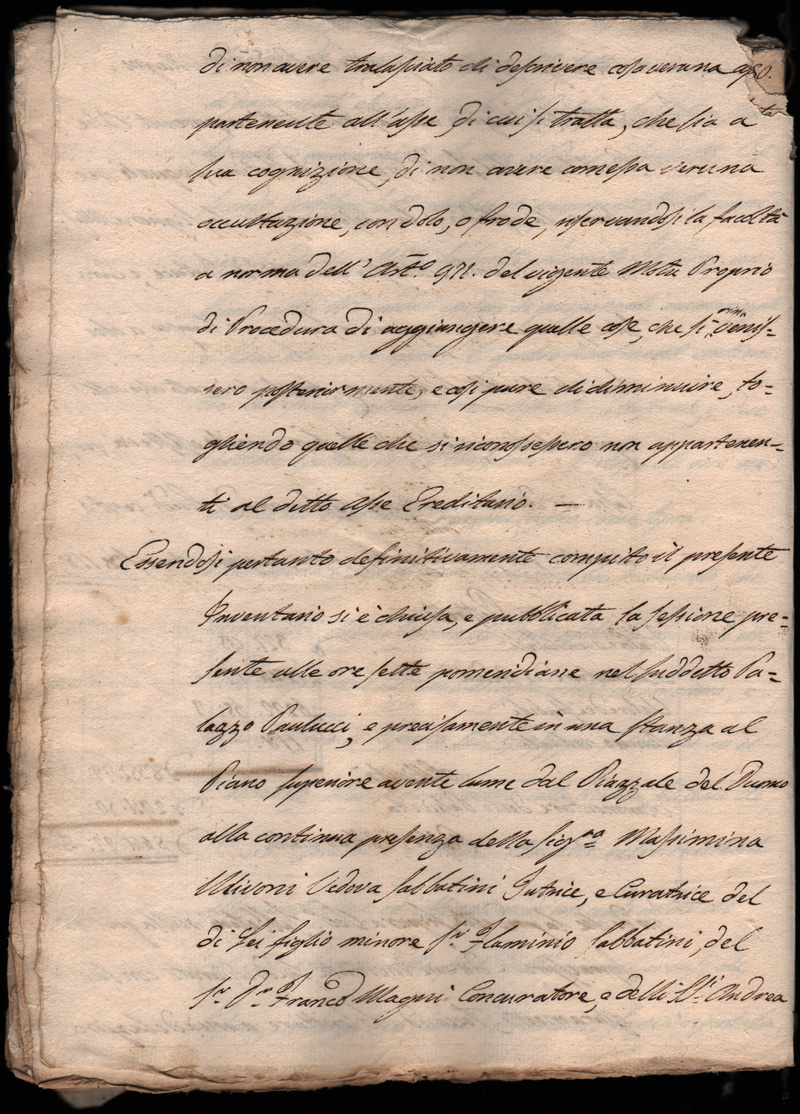 di non avere tralasciato di descrivere cosa veruna ap=
partenente all'asse, di cui si tratta, che sia a
sua cognizione, di non avere comessa veruna
occultazione, con dolo, o frode, riservandosi la facoltà
a norma dell'Artº 971. del vigente Motu Proprio
di Procedura di aggiungere quelle cose, che si rinvenis=
sero posteriormente, e così pure di diminuire, to=
gliendo quelle che si riconoscessero non appartenen=
ti al ditto asse Ereditario. —
Essendosi pertanto definitivamente compito il presente
Inventario si è chiusa, e pubblicata la sessione pre=
sente alle ore sette pomeridiane nel suddetto Pa=
lazzo Paulucci, e precisamente in una stanza al
Piano superiore avente lume dal Piazzale del Duomo
alla continua presenza della Sigra Massimina
Vedova Sabbatini Tutrice, e Curatrice del
di Lei figlio minore Sr Flaminio Sabbatini, del
Sr Dr Franco Magni Concuratore, e delli SSri Andrea